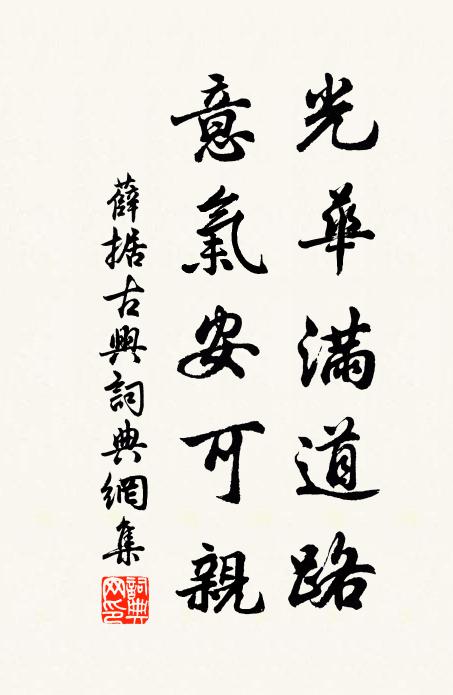 光華滿道路
意氣安可親
薛据古典詞典網集
詞典网印